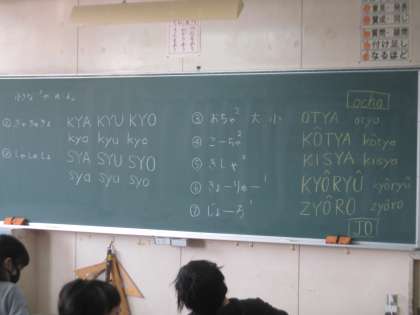 小さな「ゃ、ゅ、ょ」
① きゃきゅきょ KYA KYU KYO
kya kyu kyo
② しゃしゅしょ SYA SYU SYO
sya syu syo
ocha
③ おちゃ 2 大 小 OTYA otya
④ こーちゃ 2 KÔTYA kôtya
⑤ きしゃ 2 KISYA kisya
⑥ きょーりゅー 1 KYÔRYÛ kyôryû
⑦ じょーろ 1 ZYÔRO zyôro
JO
質問
付け足し
なるほど